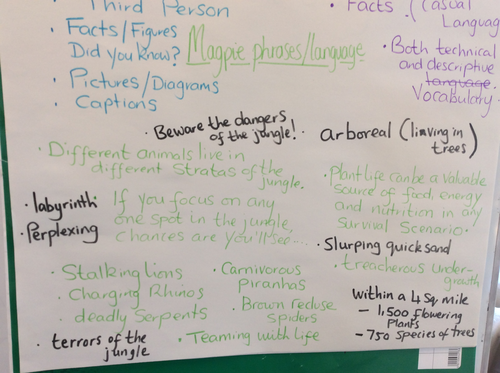 Third Person
• Facts/Figures
Did you know?
• Pictures/Diagrams
• Captions
Magpie phrases/language
• Facts
(Casual
Language
• Both technical
and descriptive
language.
Vocabulary.
• Beware the dangers
of the jungle!
• arboreal (linving in
trees)
• Different animals live in
different Stratas of the
jungle.
• Plant Life can be a valuable
source of food, energy
and nutrition in any
Survival Scenario.
• labyrinth
• Perplexing
If you focus on any
one spot in the jungle,
chances are you'll see...
• Slurping quicksand
• treacherous under-
growth
• Stalking lions
• Charging Rhinos
• deadly Serpents
• Carnivorous
piranhas
• Brown reduse
spiders
within a 4 Sq. mile
– 1,500 flowering
Plants
– 750 species of trees
• terrors of the
jungle
• Teaming with life